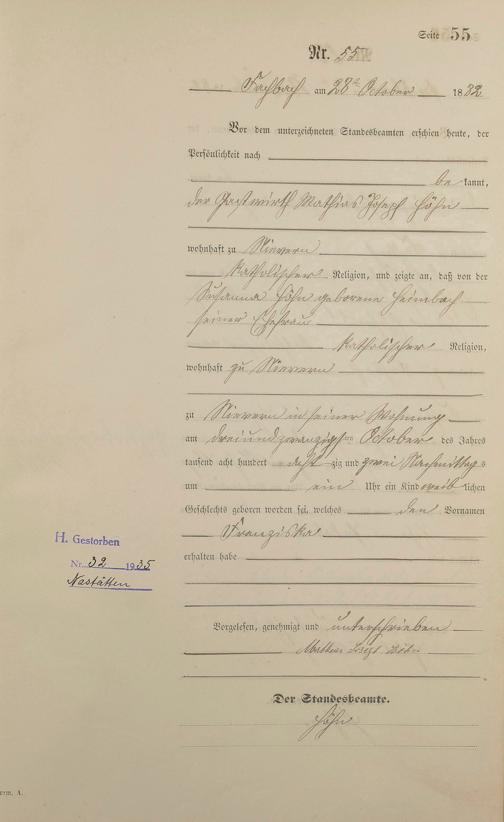 Seite 55
Nr. 55
Fachbach am 28ten October 1882
Vor dem unterzeichneten Standesbeamten erschien heute, der
Persönlichkeit nach
be kannt,
der Gastwirth Mathias Joseph Höhn
wohnhaft zu Nievern
katholischer Religion, und zeigte an, daß von der
Susanna Höhn geborene Heimbach
seiner Ehefrau
katholischer Religion,
wohnhaft zu Nievern
zu Nievern in seiner Wohnung
am dreiundzwanzigsten October des Jahres
tausend acht hundert acht zig und zwei Nachmittags
um ein Uhr ein Kind weib lichen
Geschlechts geboren worden sei, welches den Vornamen
Franziska
erhalten habe
Vorgelesen, genehmigt und unterschrieben
Mathias Josef Höhn
Der Standesbeamte.
Höhn
H. Gestorben
Nr. 32 1935
Nastätten
orm. A.